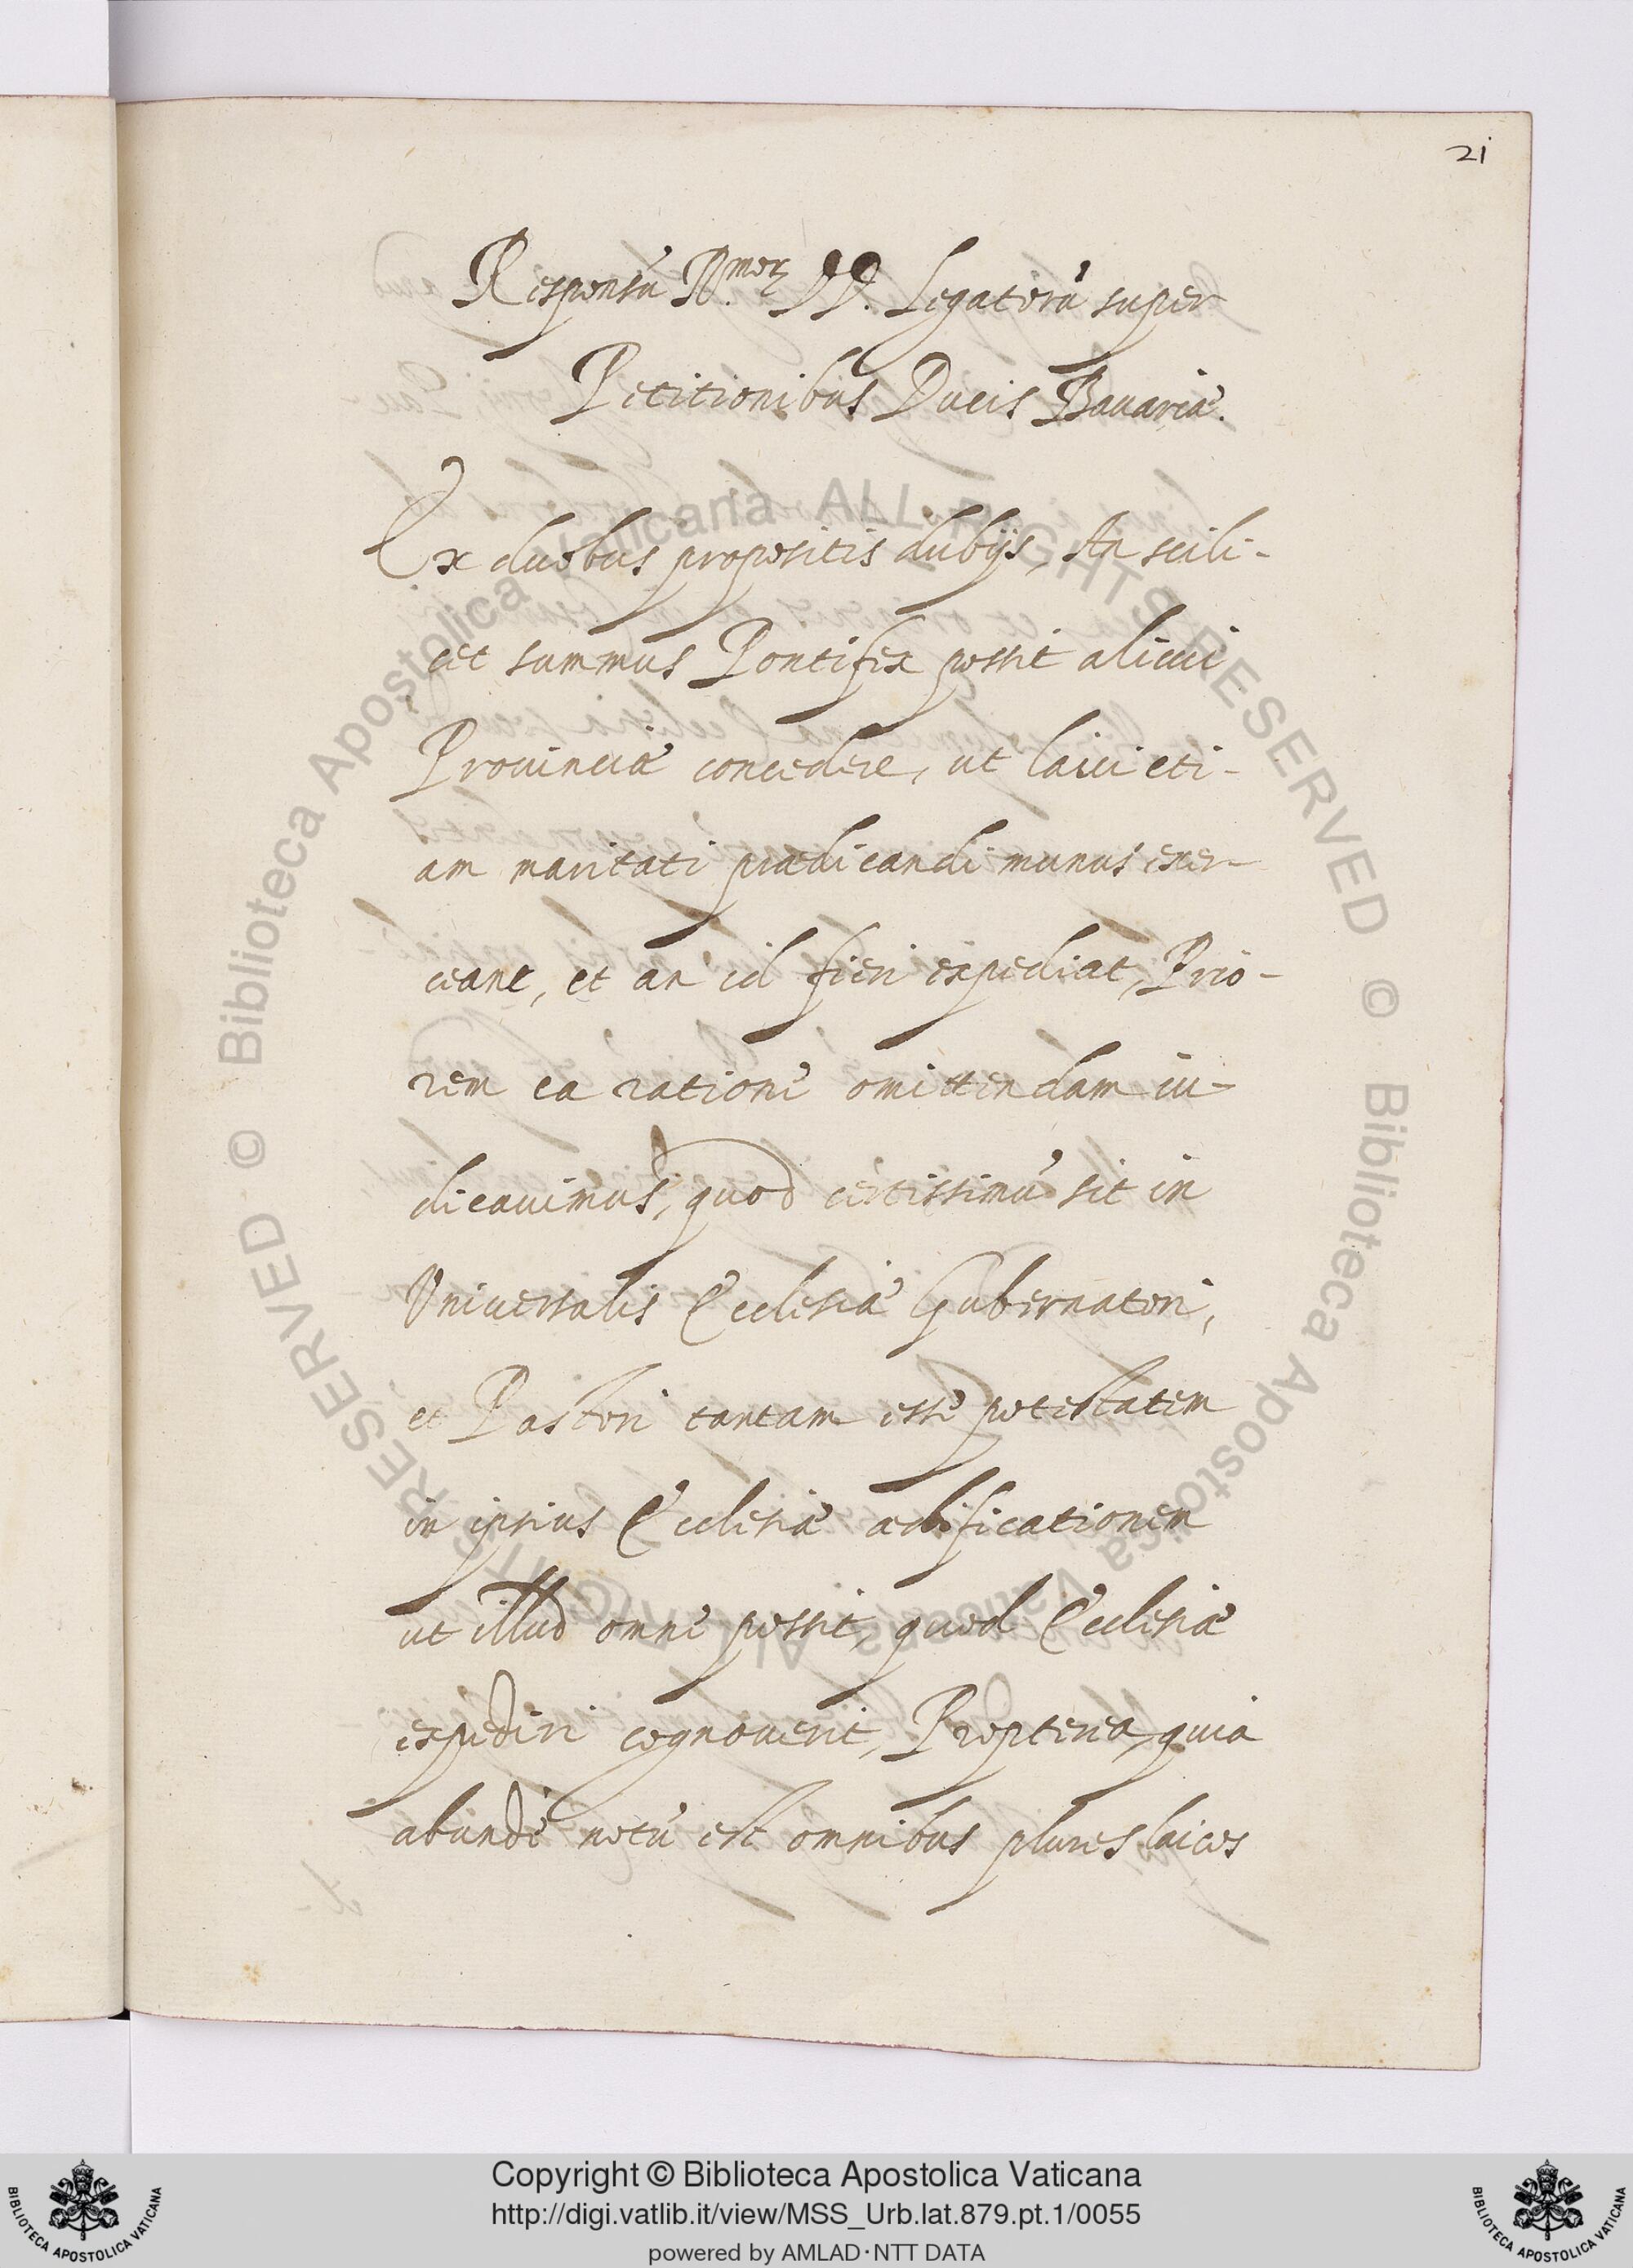 21
Responsu' R.mor DD. Legatoru' super
Petitionibus Ducis Bauariæ.
Ex duobus propositis dubijs, An scili-
cet summus Pontifex possit alicui
Prouinciæ concedere, ut laici eti-
am maritati prædicandi munus exer-
ceant, et an id fieri expediat, Prio-
rem ea ratione omittendam iu-
dicauimus, quod certissimu' sit in
Vniuersalis Ecclesiæ Gubernatori,
et Pastori tantam esse potestatem
in ipsius Ecclesiæ ædificationem
ut illud omne possit, quod Ecclesiæ
expediri cognouerit, Propterea, quia
abunde notu' est omnibus plures laicos
© Biblioteca Apostolica Vaticana ALL RIGHTS RESERVED
© Biblioteca Apostolica Vaticana ALL RIGHTS RESERVED
BIBLIOTECA APOSTOLICA VATICANA
Copyright © Biblioteca Apostolica Vaticana
http://digi.vatlib.it/view/MSS_Urb.lat.879.pt.1/0055
powered by AMLAD·NTT DATA
BIBLIOTECA APOSTOLICA VATICANA